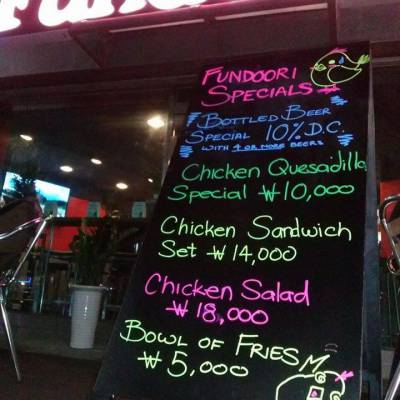 FUNDOORI
SPECIALS
BOTTLED BEER
SPECIAL 10% D.C.
WITH 4 OR MORE BEERS
Chicken Quesadilla
Special ₩10,000
Chicken Sandwich
Set ₩14,000
Chicken Salad
₩18,000
BOWL OF FRIES
₩5,000
M